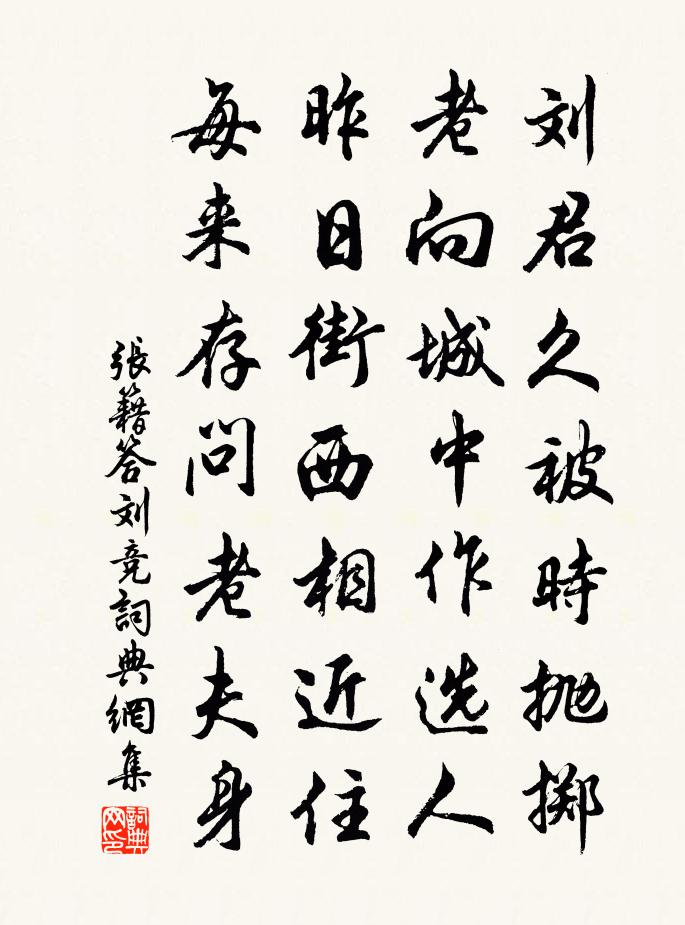 刘君久被時抛掷
老向城中作选人
昨日街西相近住
每来存问老夫身
張籍答刘竞詞典網集
詞典网印